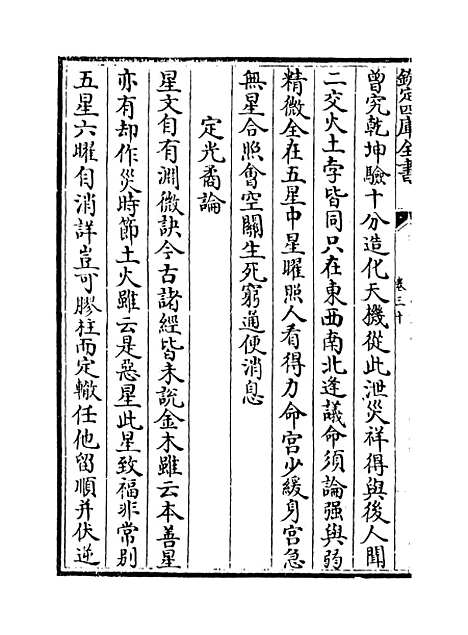 欽定四庫全書
卷三十
曾究乾坤驗十分造化天機從此泄災祥得與後人聞
二交火土孛皆同只在東西南北逢議命須論强與弱
精微全在五星中星曜照人看得力命宫少緩身宫急
無星合照會空關生死窮通便消息
定光矞論
星文自有淵微訣今古諸經皆未說金木雖云本善星
亦有却作災時節土火雖云是惡星此星致福非常别
五星六曜自消詳豈可膠柱而定轍任他留順并伏逆